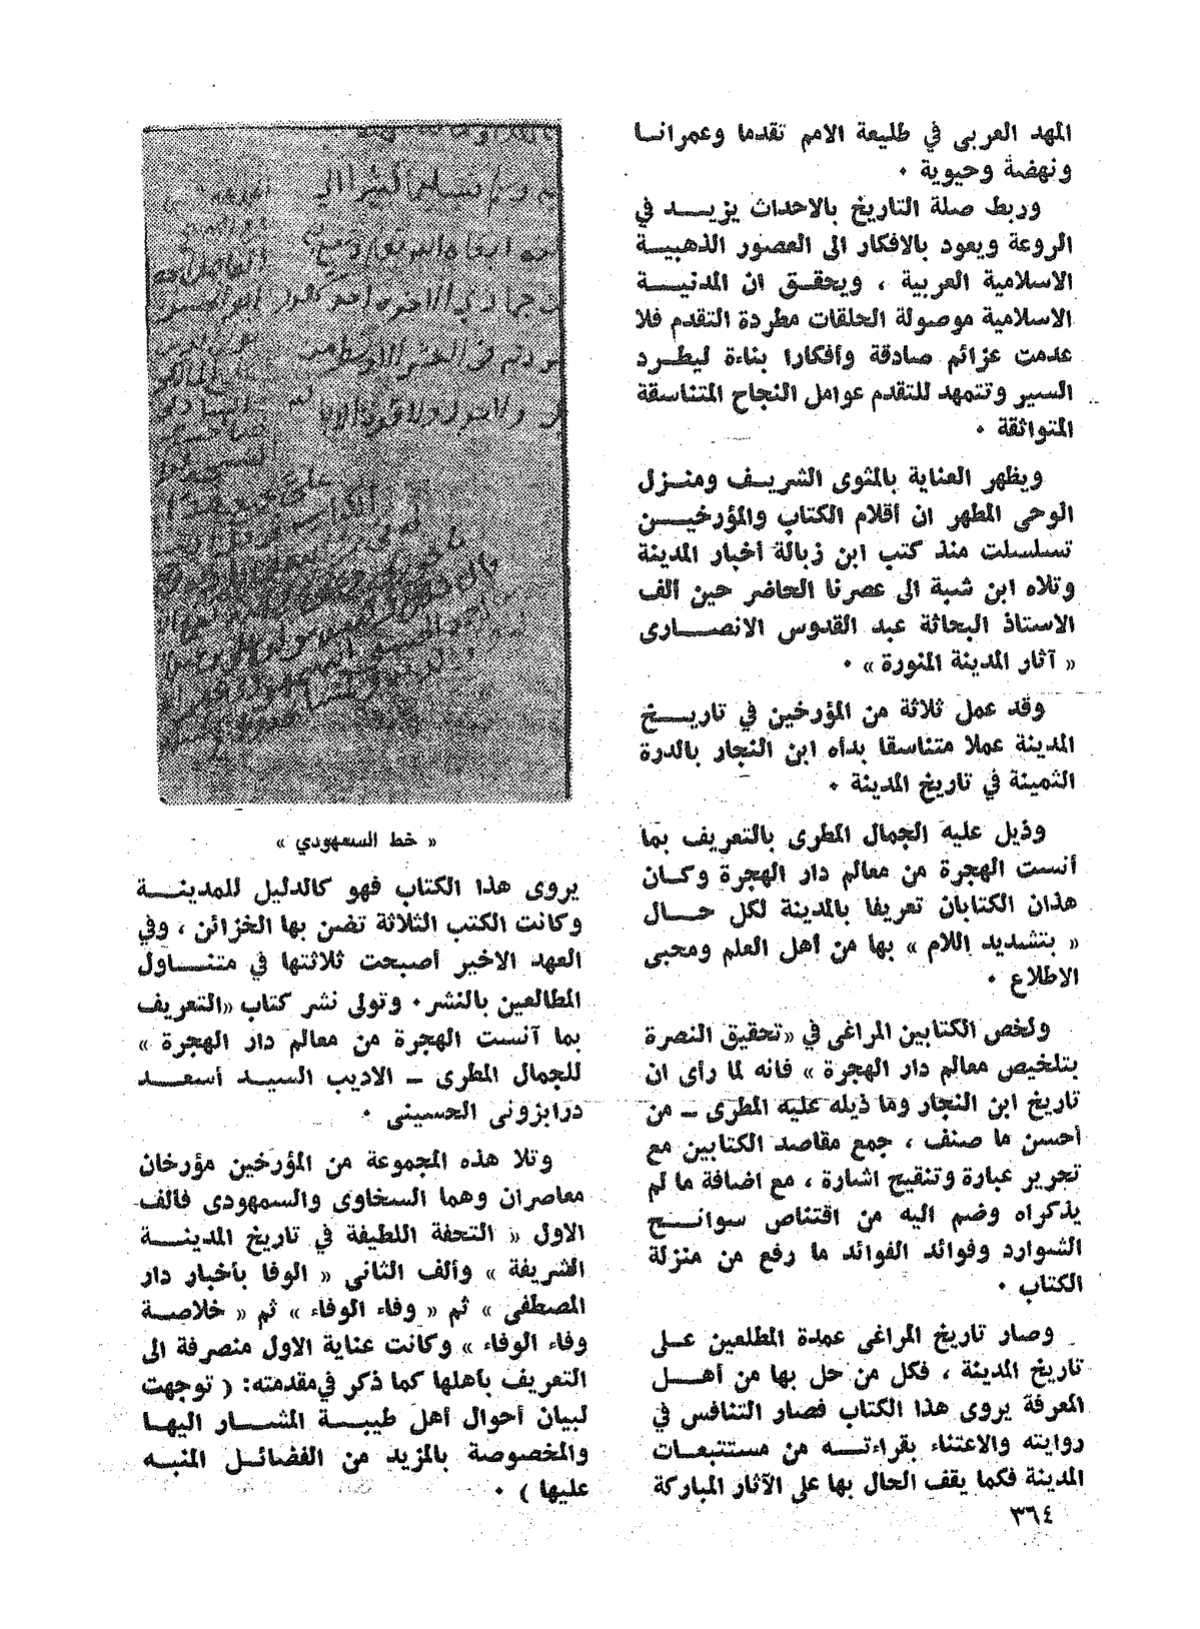 المهد العربى في طليعة الامم تقدما وعمرانا
ونهضة وحيوية ٠
وربط صلة التاريخ بالاحداث يزيد في
الروعة ويعود بالافكار الى العصور الذهبية
الاسلامية العربية ، ويحقق ان المدنية
الاسلامية موصولة الحلقات مطردة التقدم فلا
عدمت عزائم صادقة وأفكارا بناءة ليطرد
السير وتتمهد للتقدم عوامل النجاح المتناسقة
المتواثقة ٠
ويظهر العناية بالمثوى الشريف ومنزل
الوحى المطهر ان أقلام الكتاب والمؤرخين
تسلسلت منذ كتب ابن زبالة أخبار المدينة
وتلاه ابن شبة الى عصرنا الحاضر حين ألف
الاستاذ البحاثة عبد القدوس الانصارى
« آثار المدينة المنورة » ٠
وقد عمل ثلاثة من المؤرخين في تاريخ
المدينة عملا متناسقا بدأه ابن النجار بالدرة
الثمينة في تاريخ المدينة ٠
وذيل عليه الجمال المطرى بالتعريف بما
أنست الهجرة من معالم دار الهجرة وكان
هذان الكتابان تعريفا بالمدينة لكل حال
« بتشديد اللام » بها من أهل العلم ومحبى
الاطلاع ٠
ولخص الكتابين المراغى في «تحقيق النصرة
بتلخيص معالم دار الهجرة » فانه لما رأى ان
تاريخ ابن النجار وما ذيله عليه المطرى – من
أحسن ما صنف ، جمع مقاصد الكتابين مع
تحرير عبارة وتنقيح اشارة ، مع اضافة ما لم
يذكراه وضم اليه من اقتناص سوانح
الشوارد وفوائد الفوائد ما رفع من منزلة
الكتاب ٠
وصار تاريخ المراغى عمدة المطلعين على
تاريخ المدينة ، فكل من حل بها من أهل
المعرفة يروى هذا الكتاب فصار التنافس في
روايته والاعتناء بقراءته من مستتبعات
المدينة فكما يقف الحال بها على الآثار المباركة
٣٦٤
« خط السمهودي »
يروى هذا الكتاب فهو كالدليل للمدينة
وكانت الكتب الثلاثة تضن بها الخزائن ، وفي
العهد الاخير أصبحت ثلاثتها في متناول
المطالعين بالنشر٠ وتولى نشر كتاب «التعريف
بما آنست الهجرة من معالم دار الهجرة »
للجمال المطرى – الاديب السيد أسعد
درابزونى الحسينى ٠
وتلا هذه المجموعة من المؤرخين مؤرخان
معاصران وهما السخاوى والسمهودى فالف
الاول « التحفة اللطيفة في تاريخ المدينة
الشريفة » وألف الثانى « الوفا بأخبار دار
المصطفى » ثم « وفاء الوفاء » ثم « خلاصة
وفاء الوفاء » وكانت عناية الاول منصرفة الى
التعريف بأهلها كما ذكر في مقدمته: ( توجهت
لبيان أحوال أهل طيبة المشار اليها
والمخصوصة بالمزيد من الفضائل المنبه
عليها ) ٠